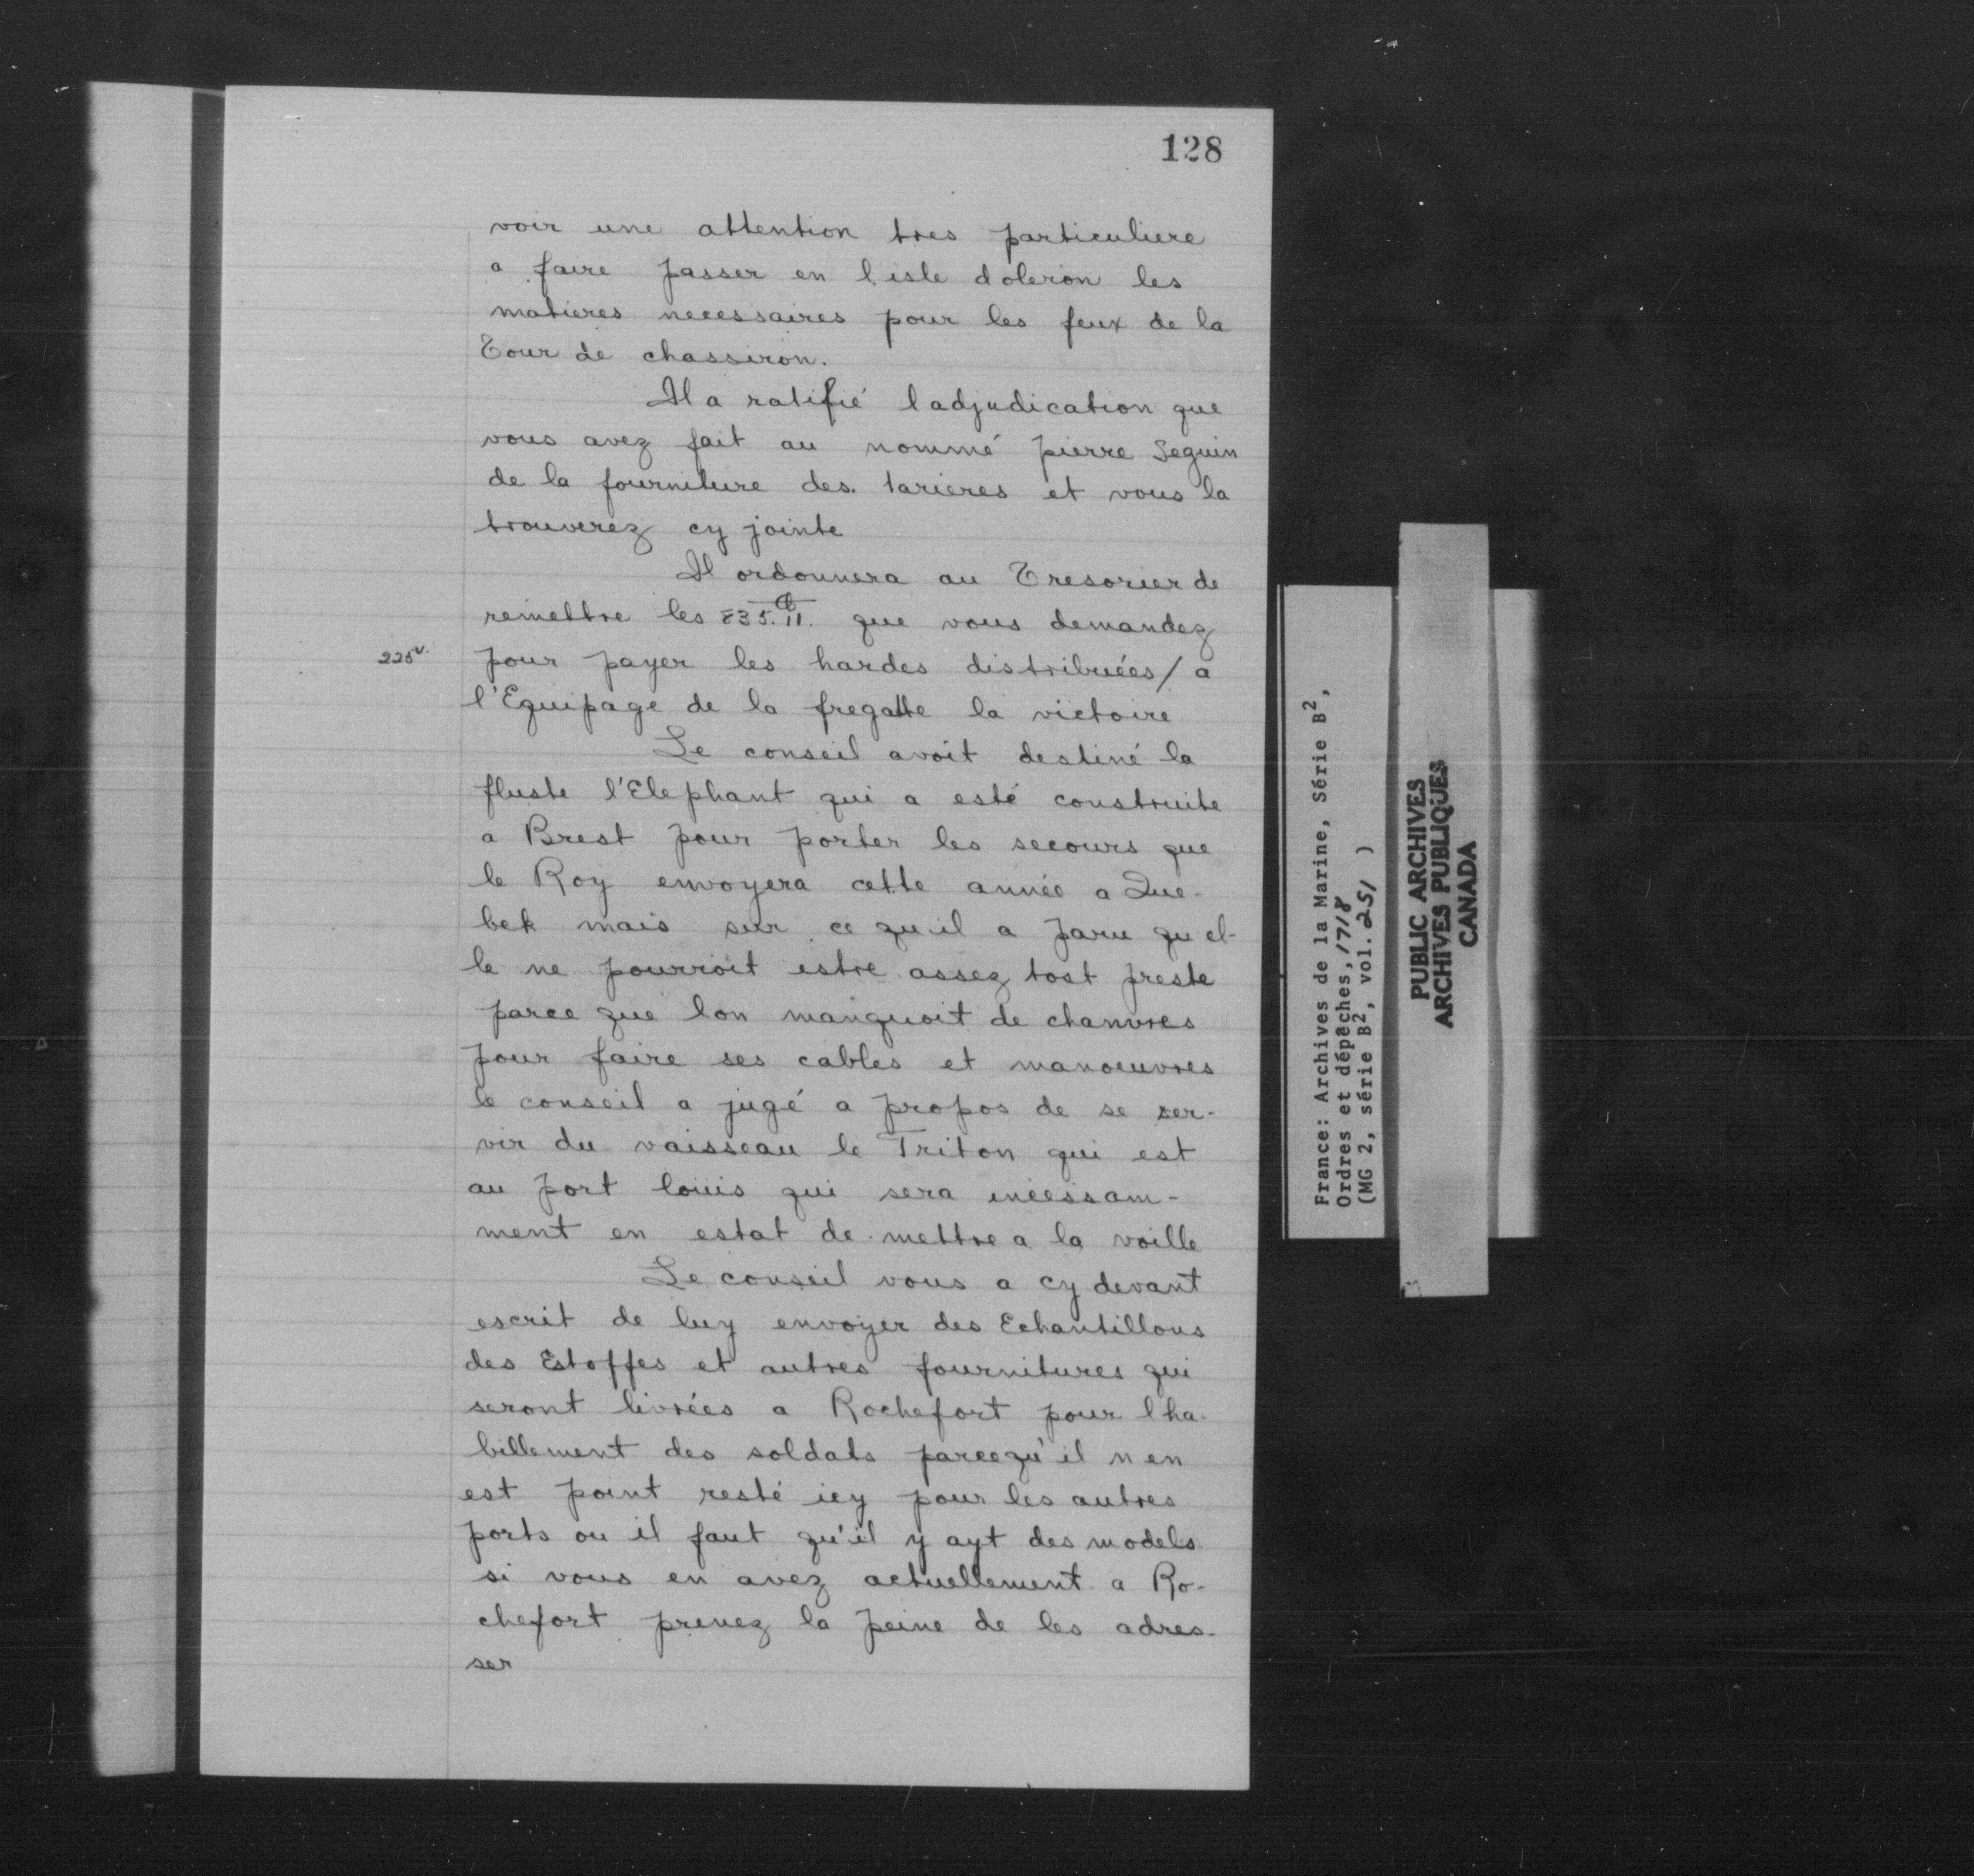 128
voir une attention tres particuliere
a faire passer en l'isle doleron les
matieres necessaires pour les feux de la
Tour de chassiron.
Il a ratifié ladjudication que
vous avez fait au nommé pierre Seguin
de la fourniture des tarieres et vous la
trouverez cy jointe
Il ordonnera au Tresorier de
remettre les 835.₶ 11. que vous demandez
225v. pour payer les hardes distribuées / a
l'Equipage de la fregatte la victoire
Le conseil avoit destiné la
fluste l'Elephant qui a esté construite
a Brest pour porter les secours que
le Roy envoyera cette année a Que-
bek mais sur ce qu'il a paru qu'el-
le ne pourroit estre assez tost preste
parce que lon manquoit de chanvres
pour faire ses cables et manoeuvres
le conseil a jugé a propos de se ser-
vir du vaisseau le Triton qui est
au port louis qui sera incessam-
ment en estat de mettre a la voille
Le conseil vous a cy devant
escrit de luy envoyer des Echantillons
des Estoffes et autres fournitures qui
seront livrées a Rochefort pour lha-
billement des soldats parcequ'il n en
est point resté icy pour les autres
ports ou il faut qu'il y ayt des models
si vous en avez actuellement a Ro-
chefort prenez la peine de les adres-
ser
France: Archives de la Marine, Série B2,
Ordres et dépêches, 1718
(MG 2, série B2, vol. 251 )
PUBLIC ARCHIVES
ARCHIVES PUBLIQUES
CANADA